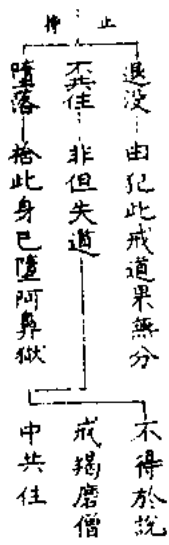 止持
退没 由犯此戒道果無分
不共住 非但失道
墮落 捨此身已墮阿鼻獄
不得於説
戒羯磨僧
中共住